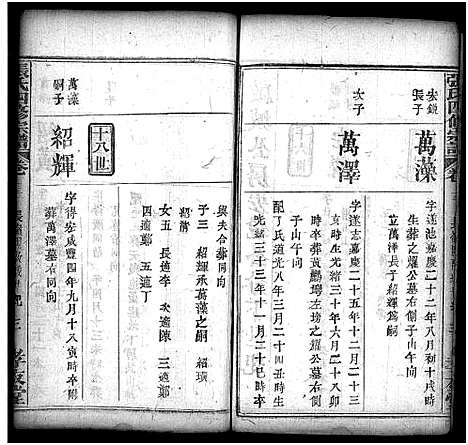 張氏四修宗譜
宏鎰
長子
萬藻
字蓬池嘉慶二十二年八月初十戌時
生
公墓右側子山午向
立萬澤長子紹輝爲嗣
次子
萬澤
字蓬志嘉慶二十五年十二月二十三日
亥時生光緒三十年六月二十八卯
時卒葬黃鸝塘左宏燿公墓右側
子山午向
配丁氏道光八年三月二十四時生
光緒三十三年十一月三十巳時卒
與夫合葬同向
子三 紹輝承萬藻之嗣 紹瑛
紹濟
女五 長適李 次適陳 三適鄭
四適鄭 五適丁
十八世
萬藻
嗣子
紹輝
字得安咸豐四年九月十八寅時卒
葬萬澤墓右同向
張氏四修宗譜
孝友堂